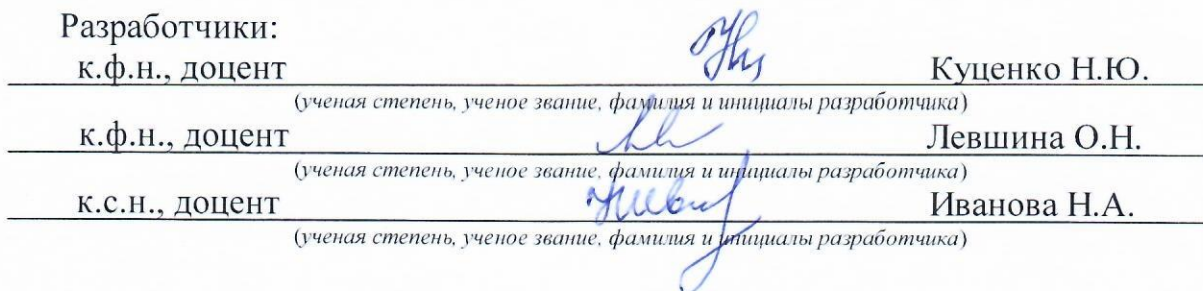 Разработчики:
к.ф.н., доцент Куценко Н.Ю.
(ученая степень, ученое звание, фамилия и инициалы разработчика)
к.ф.н., доцент Левшина О.Н.
(ученая степень, ученое звание, фамилия и инициалы разработчика)
к.с.н., доцент Иванова Н.А.
(ученая степень, ученое звание, фамилия и инициалы разработчика)